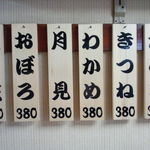 きつね
380
わかめ
380
月見
380
おぼろ
380